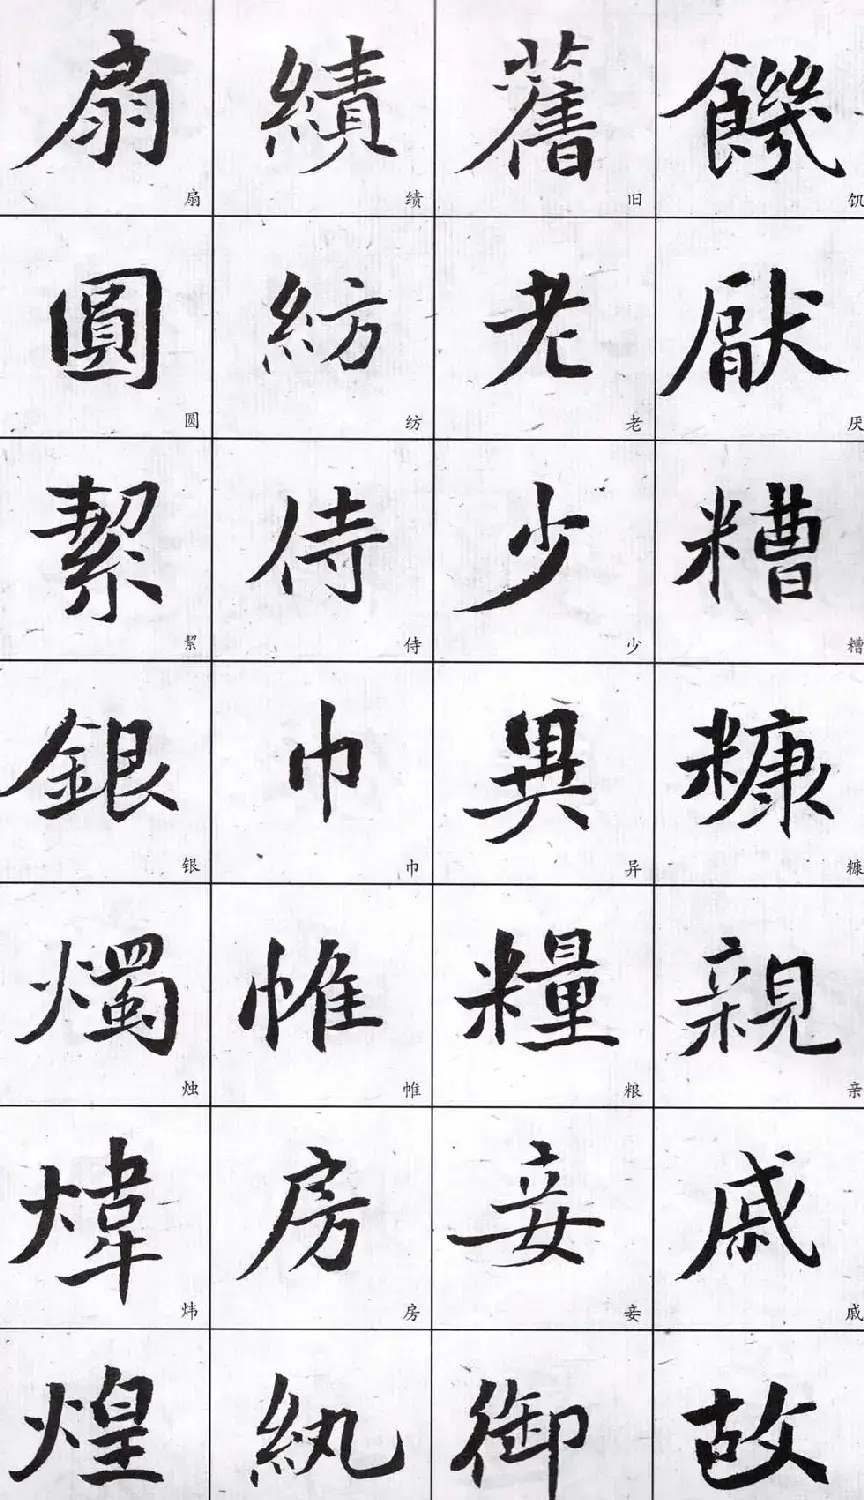 饑厭糟糠親戚故
饥厌糟糠亲戚
舊老少異糧妾御
旧老少异粮妾
績紡侍巾帷房紈
绩纺侍巾帷房
扇圓絜銀燭煒煌
扇圆絜银烛炜